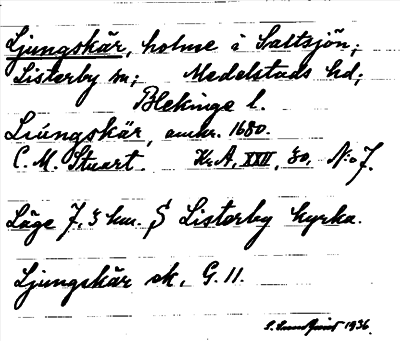 Ljungskär, holme i Saltsjön;
Listerby sn; Medelstads hd;
Blekinge l.
Liúngskär, omkr. 1680.
C. M. Stuart. Kr. A, XXII, 30, N:o 7.
Läge 7,3 km. S Listerby kyrka.
Ljungskär ek, G. 11.
S. Lundqvist 1936.